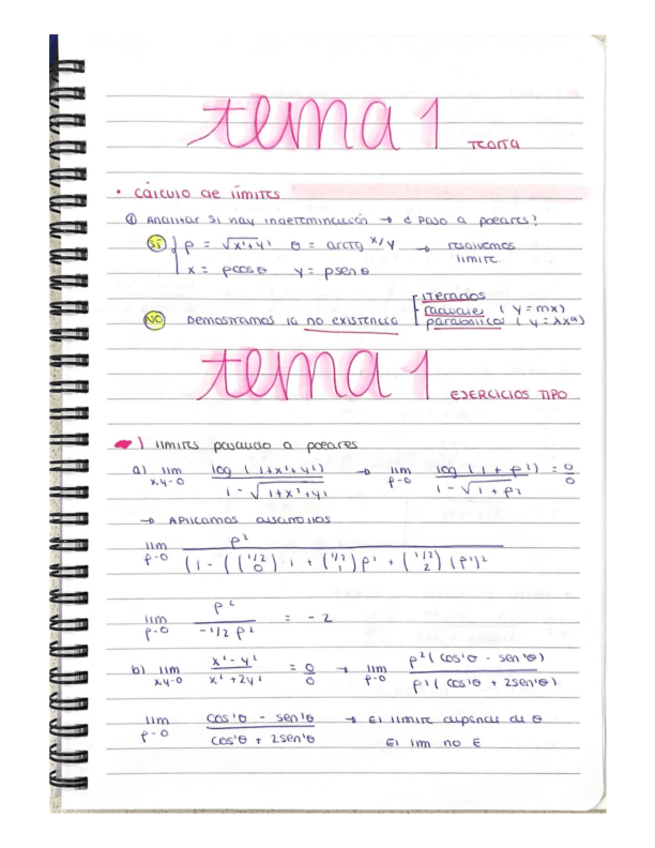 tema 1 TEORÍA
• CÁLCULO DE LÍMITES
① Analizar si hay indeterminación → ¿ Paso a polares?
SÍ { ρ = √x²+y² θ = arctg x/y → resolvemos límite
x = ρcosθ y = ρsenθ
NO Demostramos la no existencia [ iterados
radiales ( y = mx)
parabólicos ( y = λxª)
tema 1 EJERCICIOS TIPO
1) límites pasando a polares
a) lim x,y→0 log (1+x²+y²) / 1 - √1+x²+y² → lim ρ→0 log (1 + ρ²) / 1 - √1+ρ² = 0/0
→ Aplicamos desarrollos
lim ρ→0 ρ² / (1 - ((1/2 0)·1 + (1/2 1)ρ² + (1/2 2)(ρ²)²
lim ρ→0 ρ² / -1/2 ρ² = -2
b) lim x,y→0 x² - y² / x² + 2y² = 0/0 → lim ρ→0 ρ²(cos²θ - sen²θ) / ρ²(cos²θ + 2sen²θ)
lim ρ→0 cos²θ - sen²θ / cos²θ + 2sen²θ → El límite depende de θ
El lim no ∃